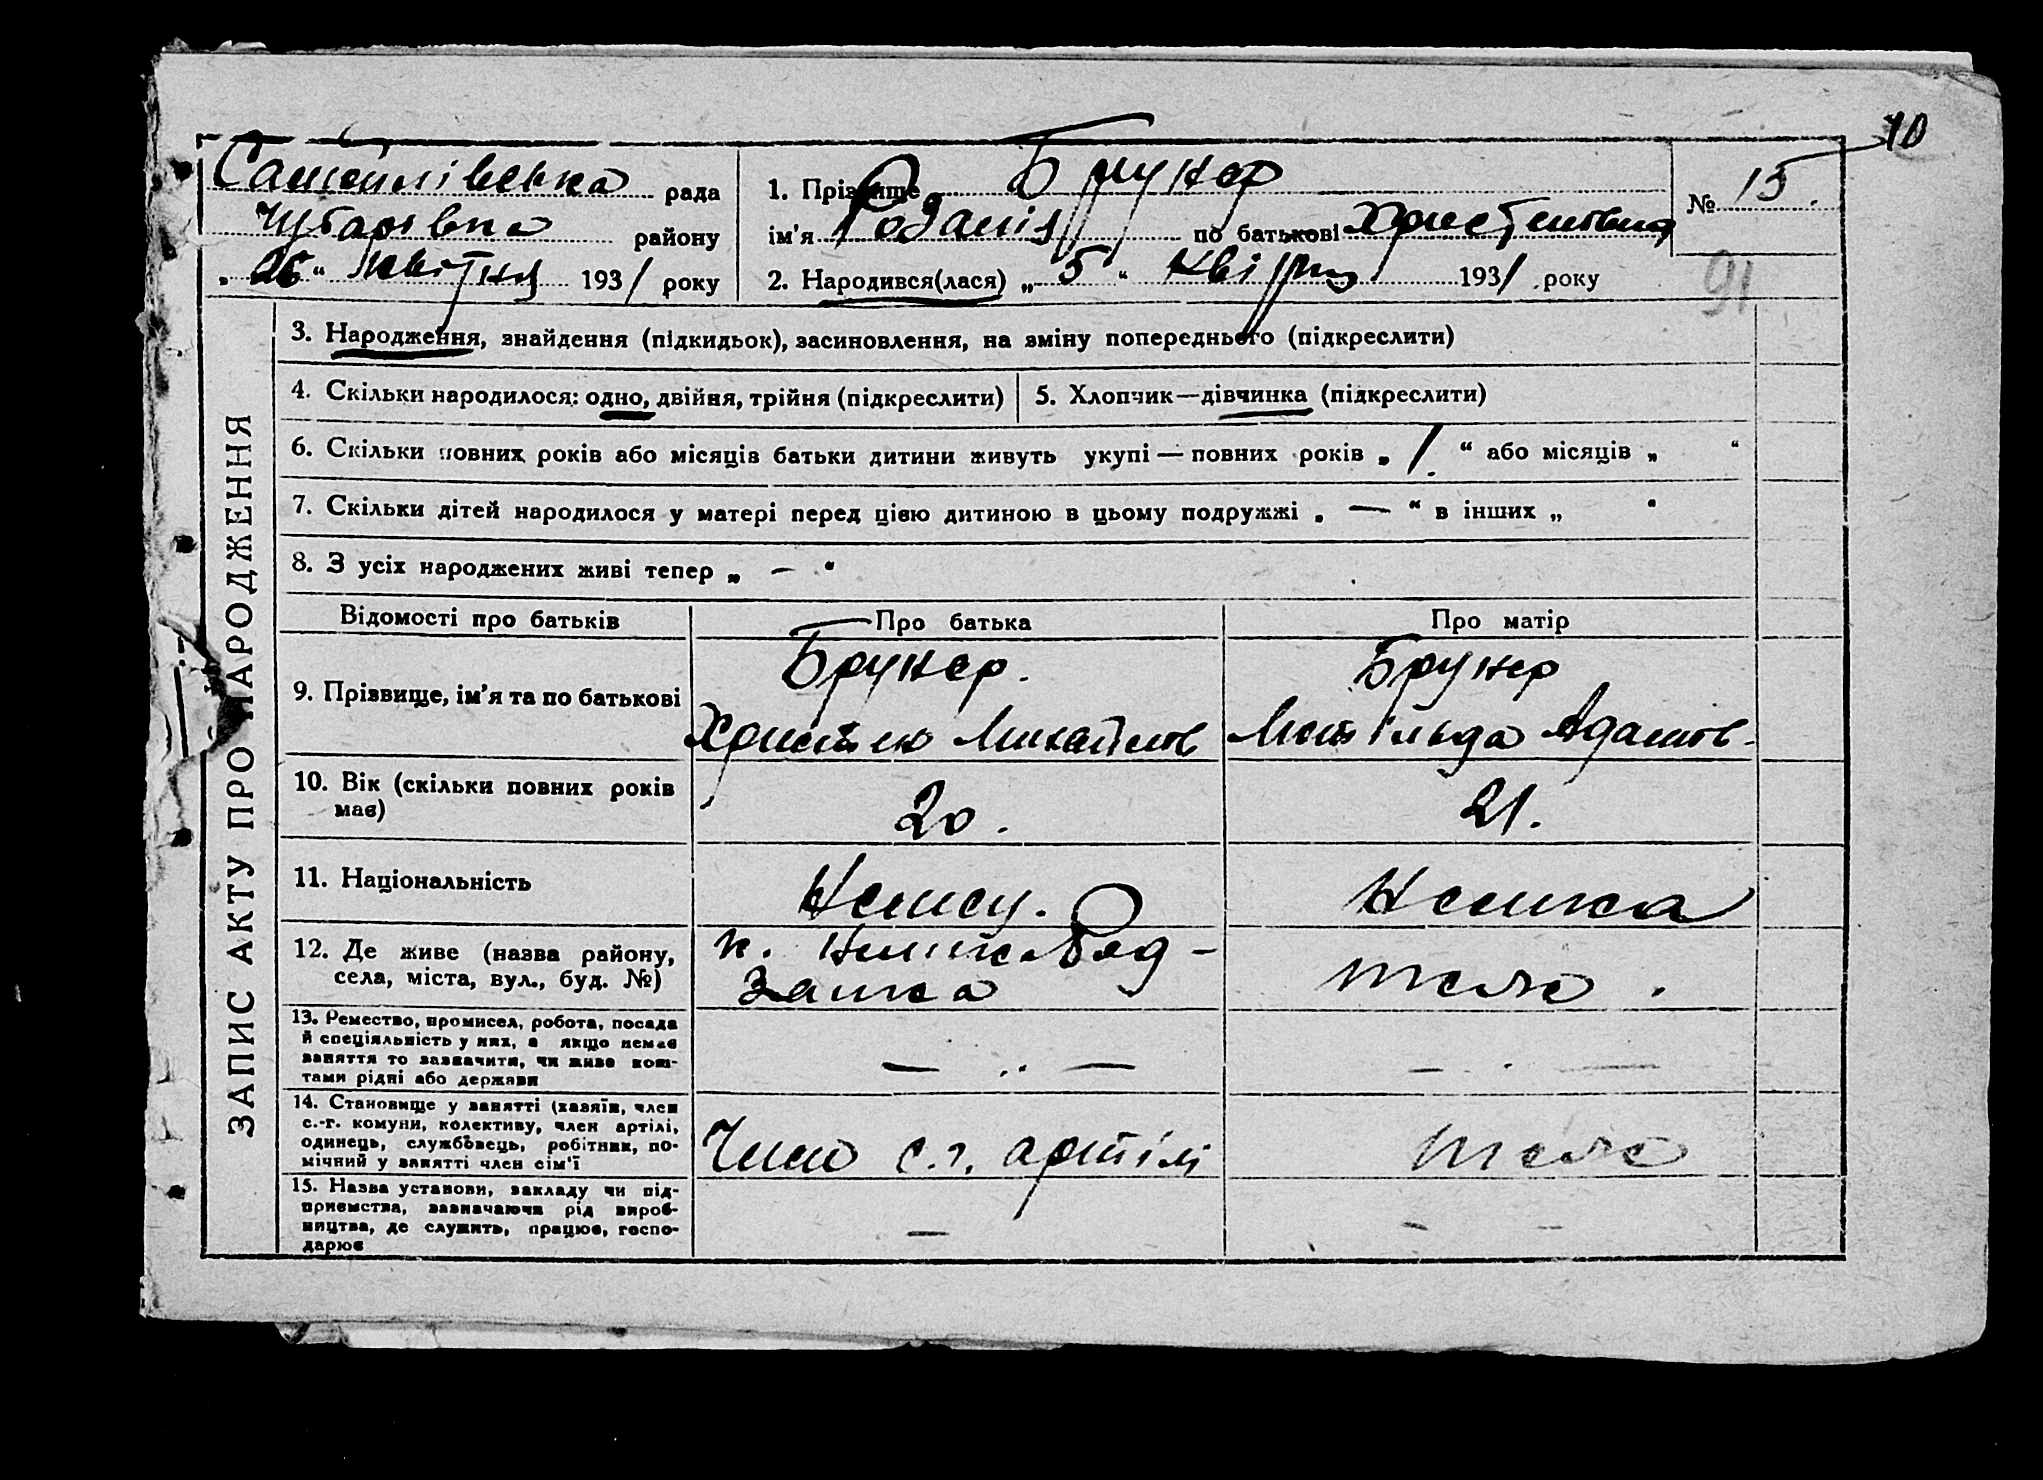 10
Самойлівська рада
Чубарівка району
„26“ квітня 1931 року
1. Прізвище Брунер
ім'я Розалія по батькові Христьянівна
2. Народився(лася) „5“ квітня 1931 року
№ 15.
91
ЗАПИС АКТУ ПРО НАРОДЖЕННЯ
3. Народження, знайдення (підкидьок), засиновлення, на зміну попереднього (підкреслити)
4. Скільки народилося: одно, двійня, трійня (підкреслити)
5. Хлопчик—дівчинка (підкреслити)
6. Скільки повних років або місяців батьки дитини живуть укупі — повних років „1.“ або місяців „ “
7. Скільки дітей народилося у матері перед цією дитиною в цьому подружжі „—“ в інших „ “
8. З усіх народжених живі тепер „—“
Відомості про батьків
Про батька
Про матір
9. Прізвище, ім'я та по батькові
Брунер.
Християн Михайлов
Брунер
Матільда Адамов-
10. Вік (скільки повних років
має)
20.
21.
11. Національність
Немец.
Немка
12. Де живе (назва району,
села, міста, вул., буд. №)
к.
теж.
13. Ремество, промисел, робота, посада
й спеціяльність у них, а якщо немає
заняття то зазначити, чи живе кош-
тами рідні або держави
— .. —
— . —
14. Становище у занятті (хазяїн, член
с.-г. комуни, колективу, член артілі,
одинець, службовець, робітник, по-
мічний у занятті член сім'ї
Член с.г. артілі
теж
15. Назва установи, закладу чи під-
приємства, зазначаючи рід вироб-
ництва, де служить, працює, госпо-
дарює
—
— —